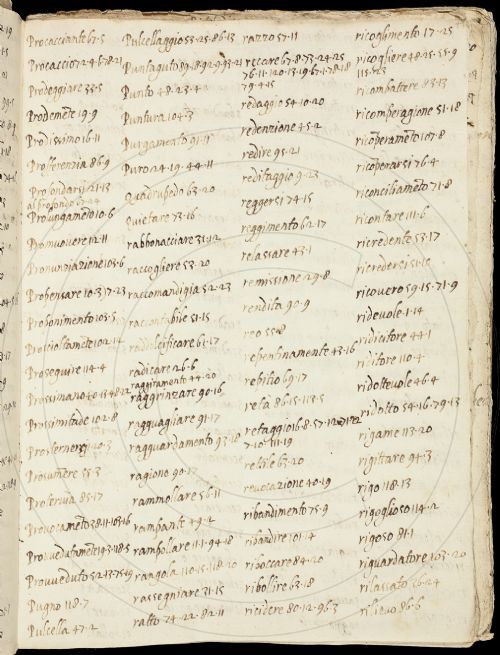 Procacciante 67·5
Procaccio 72·4·67·8·21
Predeggiare 33·5
Prodissimo 16·11
Profferenzia 86·9
Profondarsi 21·13
al profondo
Prolungamento 10·6
Promuovere 12·11
Pronunziazione 103·6
Propensare 10·3·17·23
Proponimento 103·5
Proscioltamente 102·14
Proseguire 114·4
Prossimano
Prossimitade 102·8
Prosternersi 110·3
Prosumere 33·3
Protervia 85·17
Provocamento
Provvedutamente
Provveduto
Pugno 118·7
Pulcella 47·2
Pulcellaggio 53·25·86·13
Puntaguto
Punto 48·23·4·2
Puntura 104·3
Purgamento 91·11
Puro 24·19·44·11
Quadrupedo 63·20
quietare 73·16
rabbonacciare 31·12
raccogliere 53·20
raccomandigia 52·23
raccontabile 51·15
raddolcificare 61·17
radicare 26·6
raggiramento 44·20
raggrinzare 90·16
ragguagliare 91·17
ragguardamento
ragione 90·17
rammollare 56·11
rampante 49·2
rampollare 11·1·94·18
rangola 110·15·118·20
rassegniare 31·15
ratto 74·22·82·11
razzo 57·11
reccare 67·8·73·24·25
76·11·120·13·19·67·1·78·18
79·4·15
redaggio 54·10·20
redenzione 45·2
redire 95·21
reditaggio 9·23
reggersi 74·15
reggimento 62·17
relassare 43·1
remissione 29·8
rendita 90·9
reo 55·8
repentinamente 43·16
repitio 69·17
reta 86·15·113·5
retaggio
rettile 63·20
revocazione 40·19
ribandimento 75·9
ribandire 101·4
riboccare 84·20
ribollire 63·18
ricidere 80·12·96·3
ricoglimento 17·25
ricogliere 48·25·55·9
ricombattere 83·13
ricomperagione 51·18
ricoperamento 107·8
ricoperarsi 76·4
riconciliamento 71·8
ricontare 111·6
ricredente 53·17
ricredersi 51·16
ricovero 59·15·71·9
ridevole 1·14
ridicitore 44·1
riditore 110·4
ridottevole 46·4
ridotto 54·16·79·13
rigame 113·20
rigittare 94·3
rigo 118·13
rigoglioso 114·2
rigoso 81·1
riguardatore 103·20
rilassato 76·24
rilievo 86·6